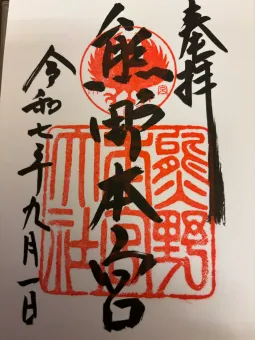 奉拝
熊野本宮
熊野本宮大社
令和七年九月一日